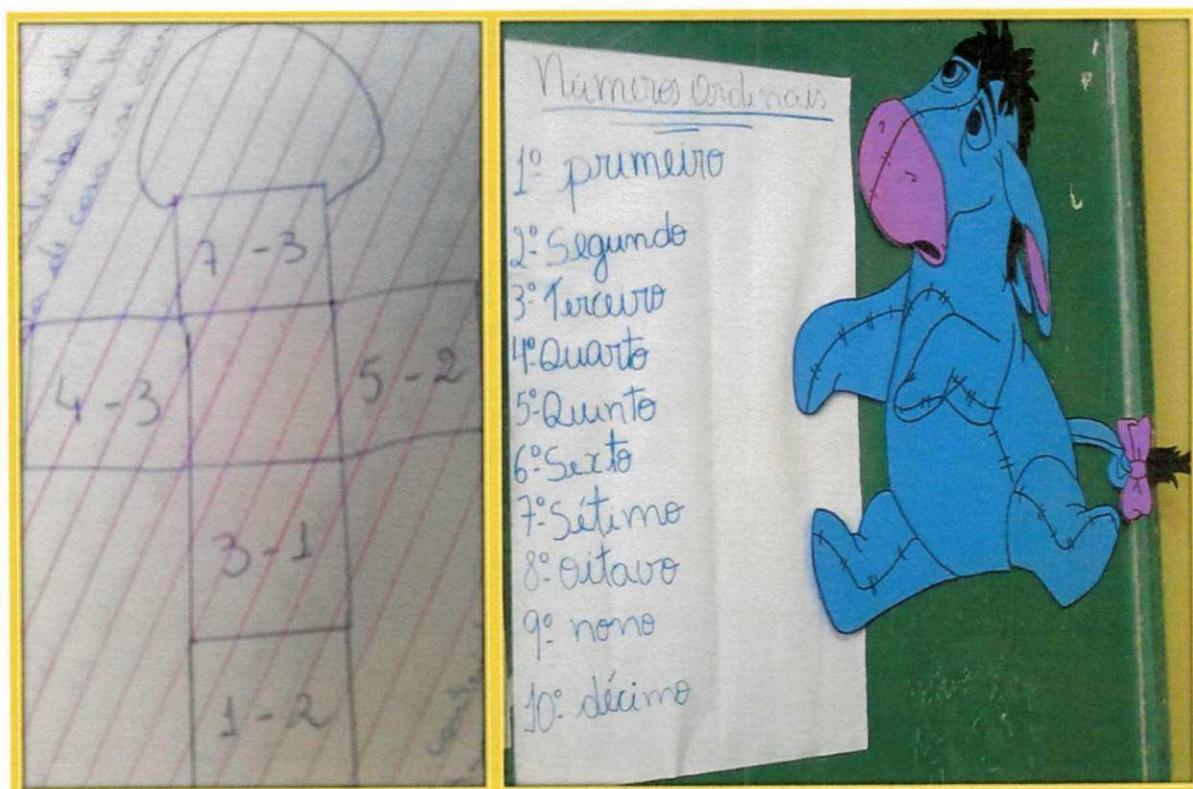 7 - 3
4 - 3
5 - 2
3 - 1
1 - 2
Números Ordinais
1º primeiro
2º Segundo
3º Terceiro
4º Quarto
5º Quinto
6º Sexto
7º Sétimo
8º oitavo
9º nono
10º décimo